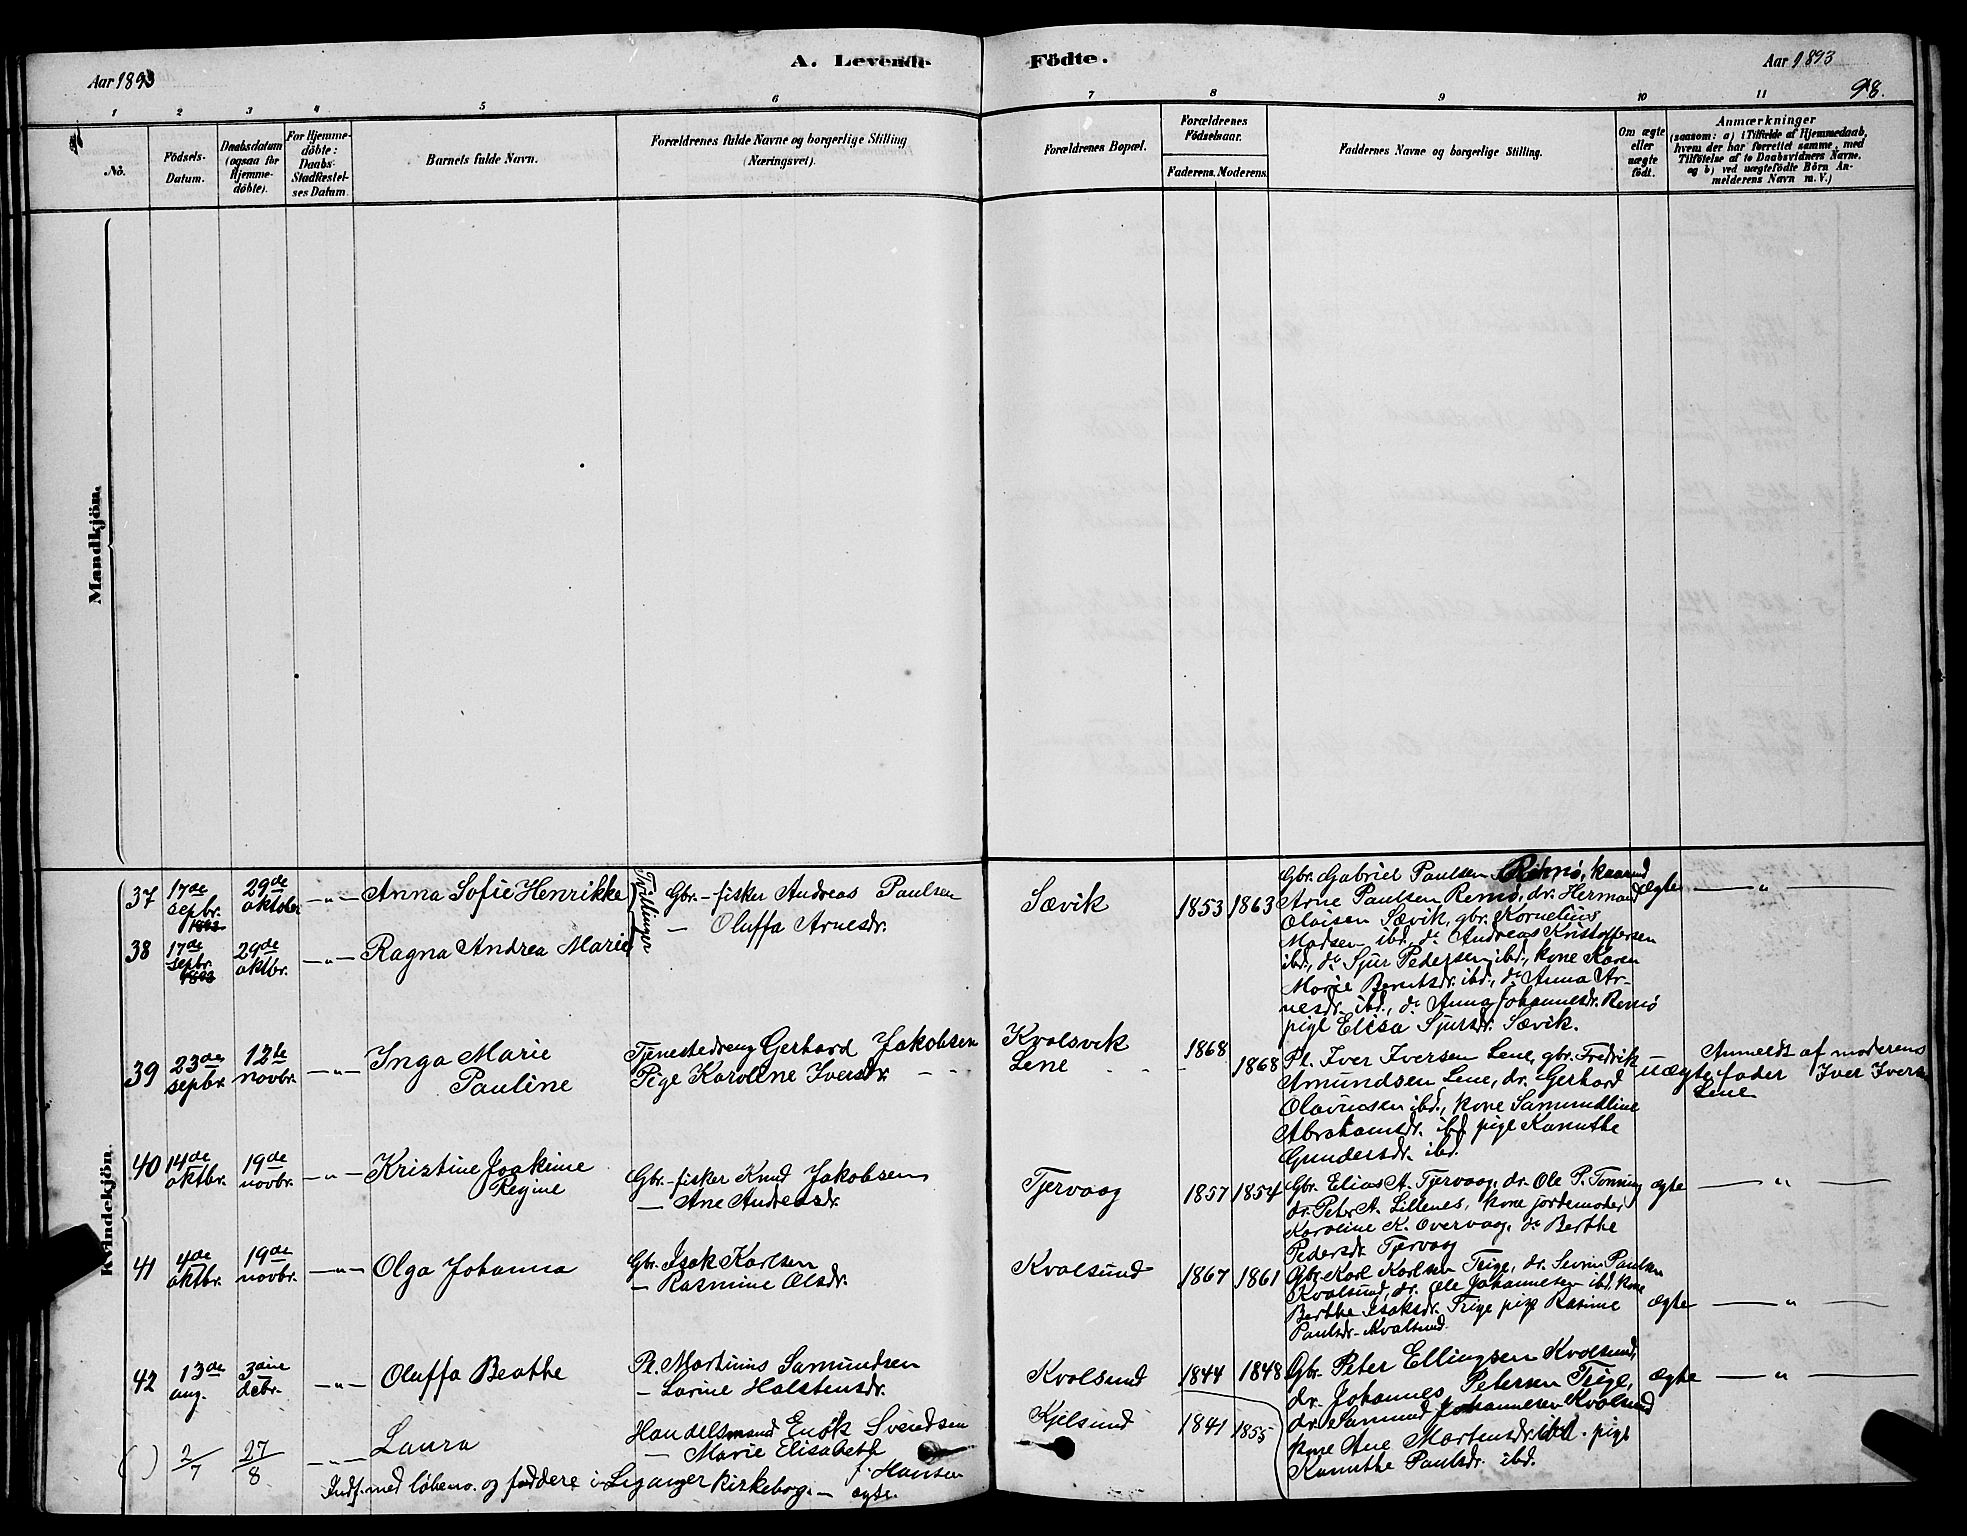 Aar 1893
A. Levende Födte.
Aar 1893
98.
1 2 3 4 5 6 7 8 9 10 11
No.
Födsels-Datum.
Daabsdatum (ogsaa for Hjemme-döbte).
For Hjemme-döbte: Daabs-Stadfæstel-ses Datum.
Barnets fulde Navn.
Forældrenes fulde Navne og borgerlige Stilling (Næringsvei).
Forældrenes Bopæl.
Forældrenes Födselsaar.
Faderens. Moderens.
Faddernes Navne og borgerlige Stilling.
Om ægte eller uægte födt.
Anmærkninger
(saasom: a) i Tilfælde af Hjemmedaab, hvem der har forrettet samme, med Tilföielse af to Daabsvidners Navne, og b) ved uægtefödte Börn An-melderens Navn m. V.)
Mandkjön.
Kvindekjön.
37 17de septbr. 1893 29de oktober —"— Anna Sofie Henrikke
Tvillinger
Gbr.-fisker Andreas Paulsen
— Oluffa Arnesdr.
Sævik 1853 1863
Gbr. Gabriel Paulsen Remö, kaarmd
Arne Paulsen Remö, dr. Hermand
Olaisen Sævik, gbr. Kornelius
Madsen ibd, do Andreas Kristoffersen
ibd., do Sjur Pedersen ibd., kone Karen
Marie Berntsdr. ibd., do Anna Ar-
nesdr. ibd., do Anna Johannesdr. Remö
pige Elisa Sjursdr. Sævik.
ægte — " —
38 17de septbr. 1893 29de oktbr. —"— Ragna Andrea Marie
39 23de septbr. 12te novbr. —"— Inga Marie
Pauline
Tjenestedreng Gerhard Jakobsen
Pige Karoline Iversdr.
Kvalsvik 1868
Lene 1868
Pl. Iver Iversen Lene, gbr. Fredrik
Amundsen Lene, dr. Gerhard
Olavussen ibd., kone Samundline
Abrahamsdr. ibd pige Kanuthe
Gundersdr. ibd.
uægte
Anmeldt af moderens
fader Iver Iversen
Lene
40 14de oktbr. 19de novbr. —"— Kristine Joakime
Regine
Gbr.-fisker Knud Jakobsen
— Ane Andreasdr.
Tjervaag 1857 1854
Gbr. Elias A. Tjervaag, dr. Ole P. Tonning
dr. Peter A. Lillenes, kone jordemoder
Karoline K. Overvaag, do Berthe
Pedersdr. Tjervaag
ægte — " —
41 4de oktbr. 19de novbr. —"— Olga Johanna
Gbr. Isak Karlsen
— Rasmine Olsdr.
Kvalsund 1867 1861
Gbr. Karl Karlsen Teige, dr. Sevrin Paulsen
Kvalsund, dr. Ole Johannesen ibd. kone
Berthe Isaksdr. Teige pige Rasine
Paulsdr. Kvalsund.
ægte — " —
42 13de aug. 3die debr. —"— Oluffa Beathe
Pl. Martinus Samundsen
— Larine Halstensdr.
Kvalsund 1844 1848
Gbr. Peter Ellingsen Kvalsund,
dr. Johannes Petersen Teige,
dr. Samund Johannesen Kvalsund
kone Ane Martensdr. ibd. pige
Kanuthe Paulsdr. ibd.
ægte — " —
( ) 2/7 27/8 —"— Laura
Handelsmand Enok Svendsen
— Marie Elisabeth
f. Hansen
Kjelsund 1841 1855
Indf. med løbeno. og faddere i Leganger kirkebog. — ægte.